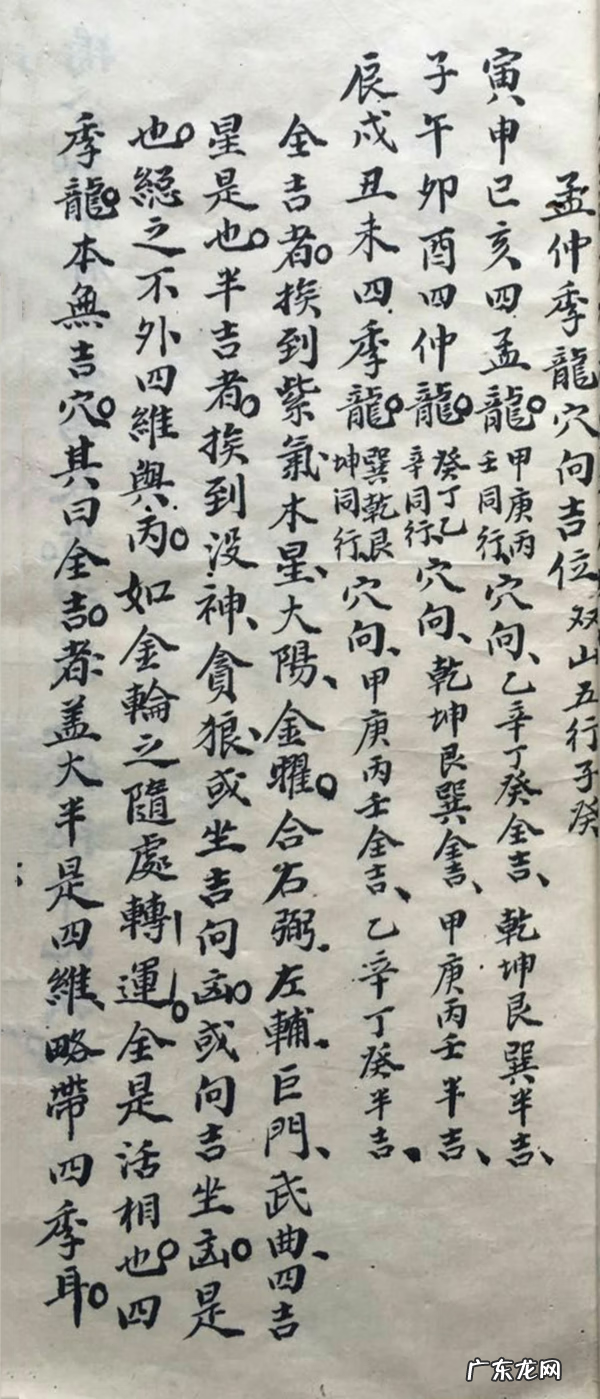 孟仲季龍穴向吉位双山五行子癸
寅申巳亥四孟龍。甲庚丙壬同行、穴向、乙辛丁癸全吉、乾坤艮巽半吉、
子午卯酉四仲龍。癸丁乙辛同行、穴向、乾坤艮巽全吉、甲庚丙壬半吉、
辰戌丑未四季龍。巽乾艮坤同行、穴向、甲庚丙壬全吉、乙辛丁癸半吉、
全吉者。挨到紫氣木星、大陽、金曜。合右弼、左輔、巨門、武曲、四吉
星是也。半吉者。挨到没神、貪狼、或坐吉向凶。或向吉坐凶。是
也。縂之不外四維與丙。如金輪之隨處轉運。全是活相也。四
季龍。本無吉穴。其曰全吉。者蓋大半是四維、略帶四季耳。
广东龙网